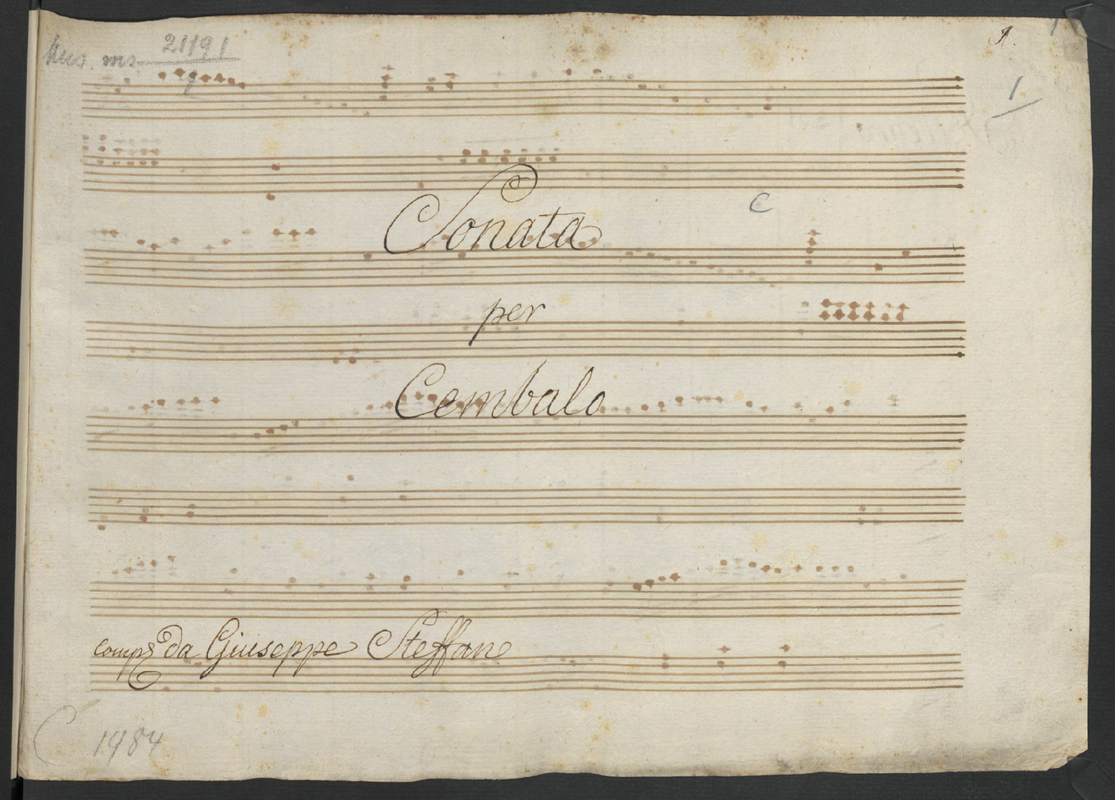 Mus. ms. 21191
1.
1
Sonata
C
per
Cembalo
comp: da Giuseppe Steffane
C 1984